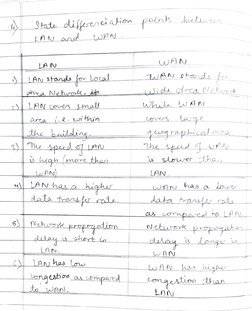 State differentiation points between
LAN and WAN.
LAN WAN
1) LAN stands for Local WAN stands for
Area Network. Wide Area Network
2) LAN covers small While WAN
area i.e. within covers large
the building. geographical area
3) The speed of LAN The speed of WAN
is high (more than is slower than
WAN) LAN
4) LAN has a higher WAN has a lower
data transfer rate. data transfer rate
as compared to LAN
5) Network propogation Network propogation
delay is short in delay is longer in
LAN. WAN
6) LAN has low WAN has higher
congestion as compared congestion than
to WAN. LAN